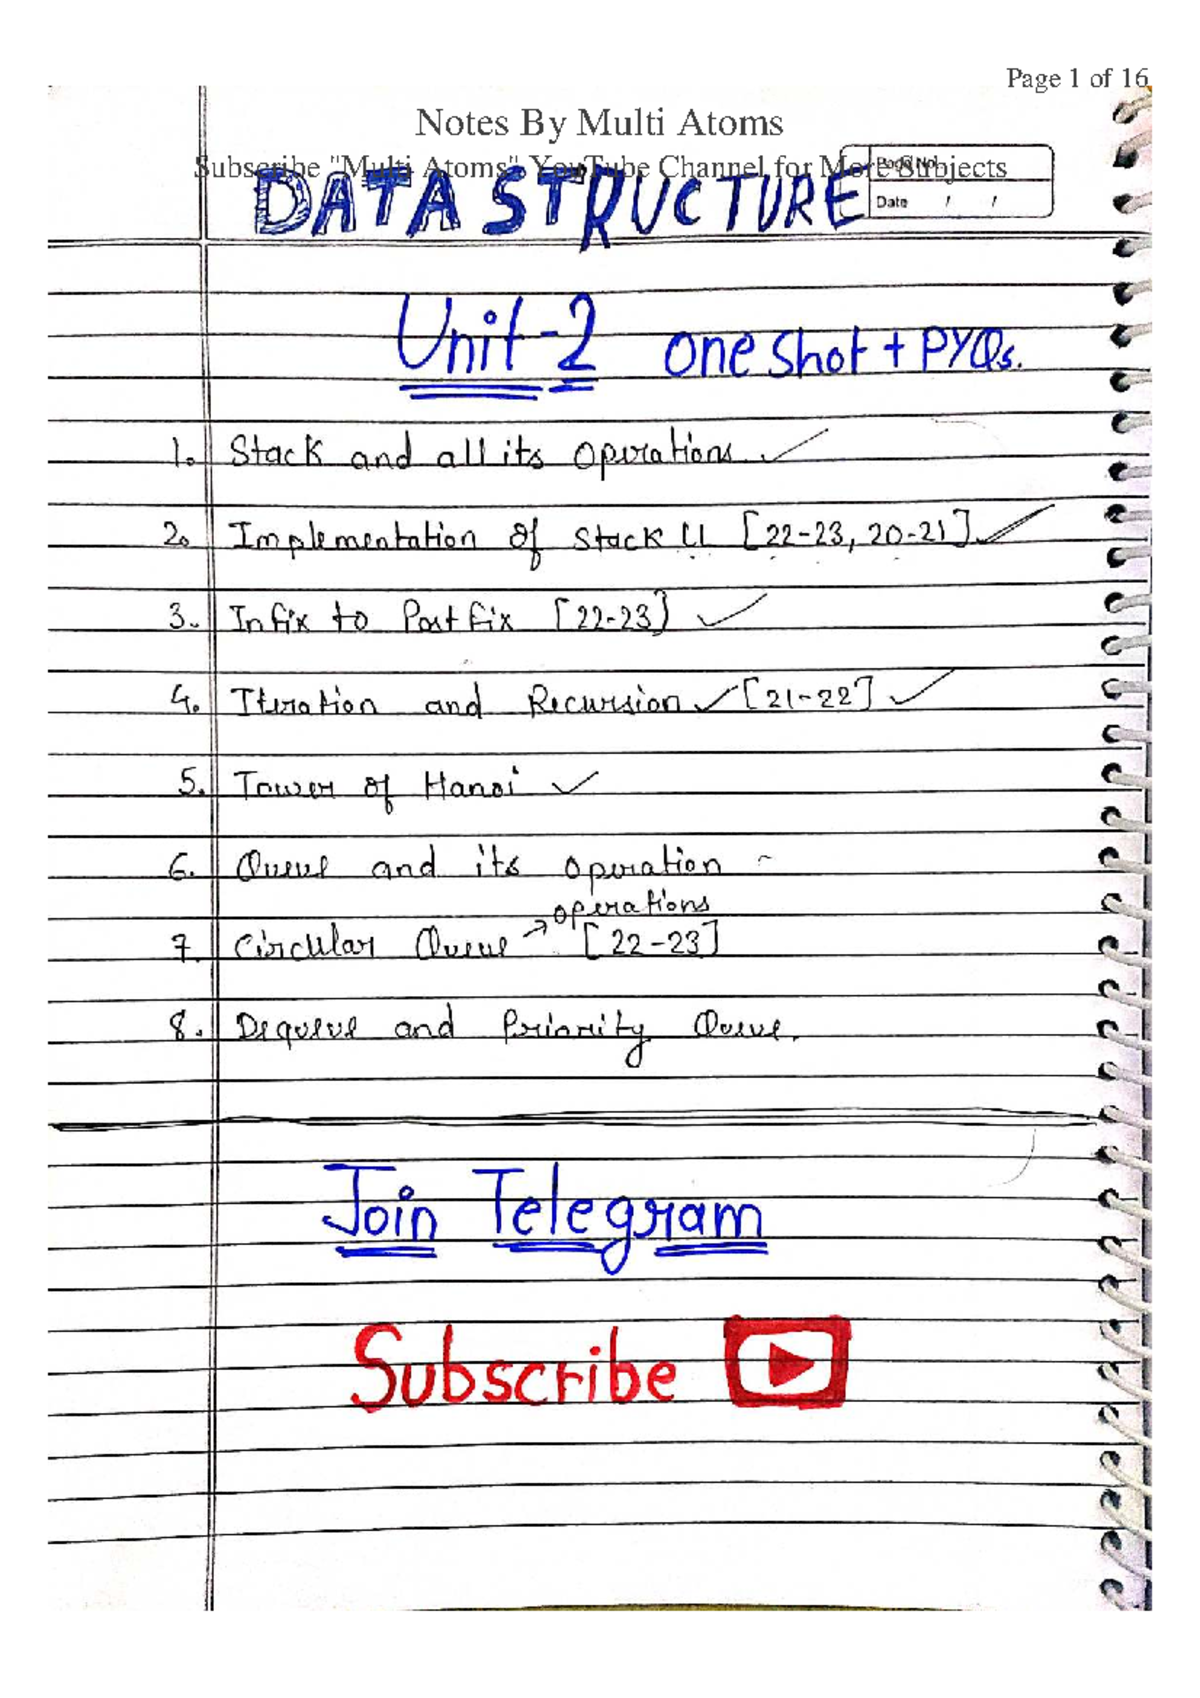 Page 1 of 16
Notes By Multi Atoms
Subscribe "Multi Atoms" YouTube Channel for More Subjects
Page No.
DATA STRUCTURE
Date / /
Unit-2 One Shot + PYQs.
1. Stack and all its Operations ✓
2. Implementation of Stack LL [22-23, 20-21] ✓
3. Infix to Postfix [22-23] ✓
4. Iteration and Recursion ✓ [21-22] ✓
5. Tower of Hanoi ✓
6. Queue and its operation -
operations
7. Circular Queue → [22-23]
8. Dequeue and Priority Queue.
Join Telegram
Subscribe